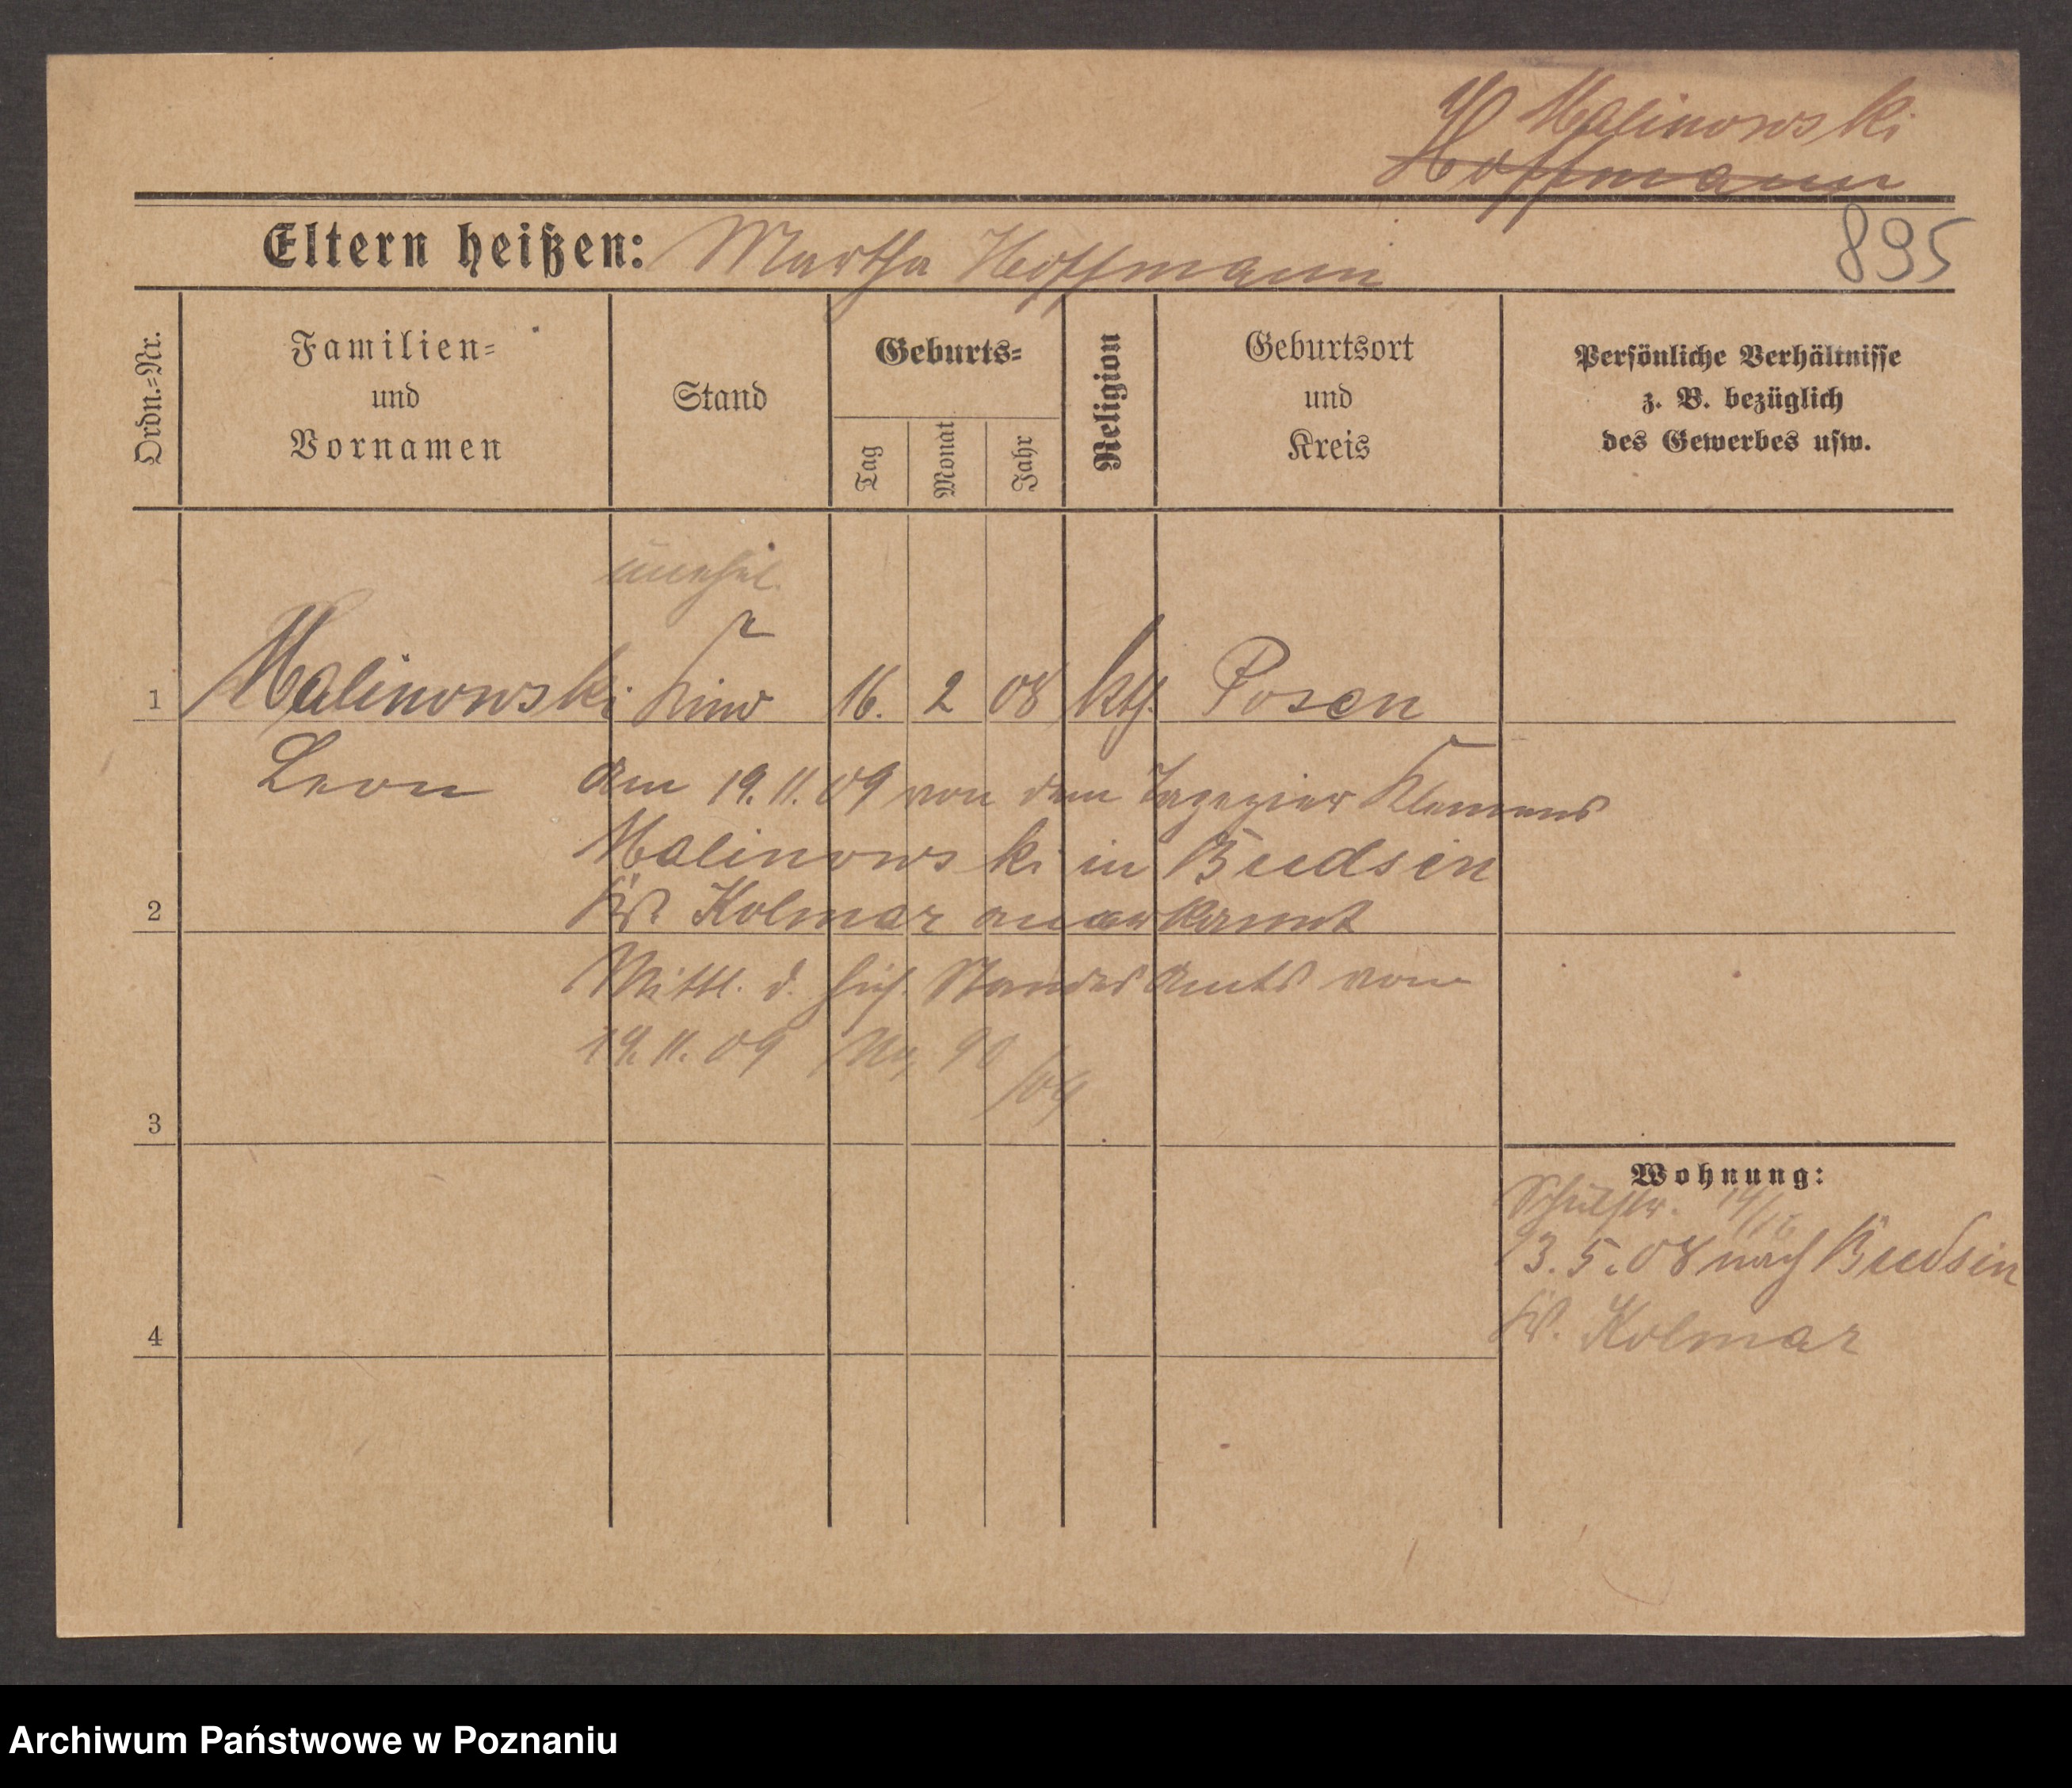 Malinowski
Hoffmann
Eltern heißen: Martha Hoffmann
895
Ordn.=Nr.
Familien=
und
Vornamen
Stand
Geburts=
Tag
Monat
Jahr
Religion
Geburtsort
und
Kreis
Persönliche Verhältnisse
z. B. bezüglich
des Gewerbes usw.
unehel.
1 Malinowski Kind 16. 2 08 kth. Posen
Leon am 19. 11. 09 von dem Tapezier Klemens
Malinowski in Budsin
2 Krs Kolmar anerkannt
Mittl. d. hies. Standesamts vom
19. 11. 09 No. 90
/09
3
Wohnung:
Schulstr. 14/15
3. 5. 08 nach Budsin
4 Kr. Kolmar
Archiwum Państwowe w Poznaniu